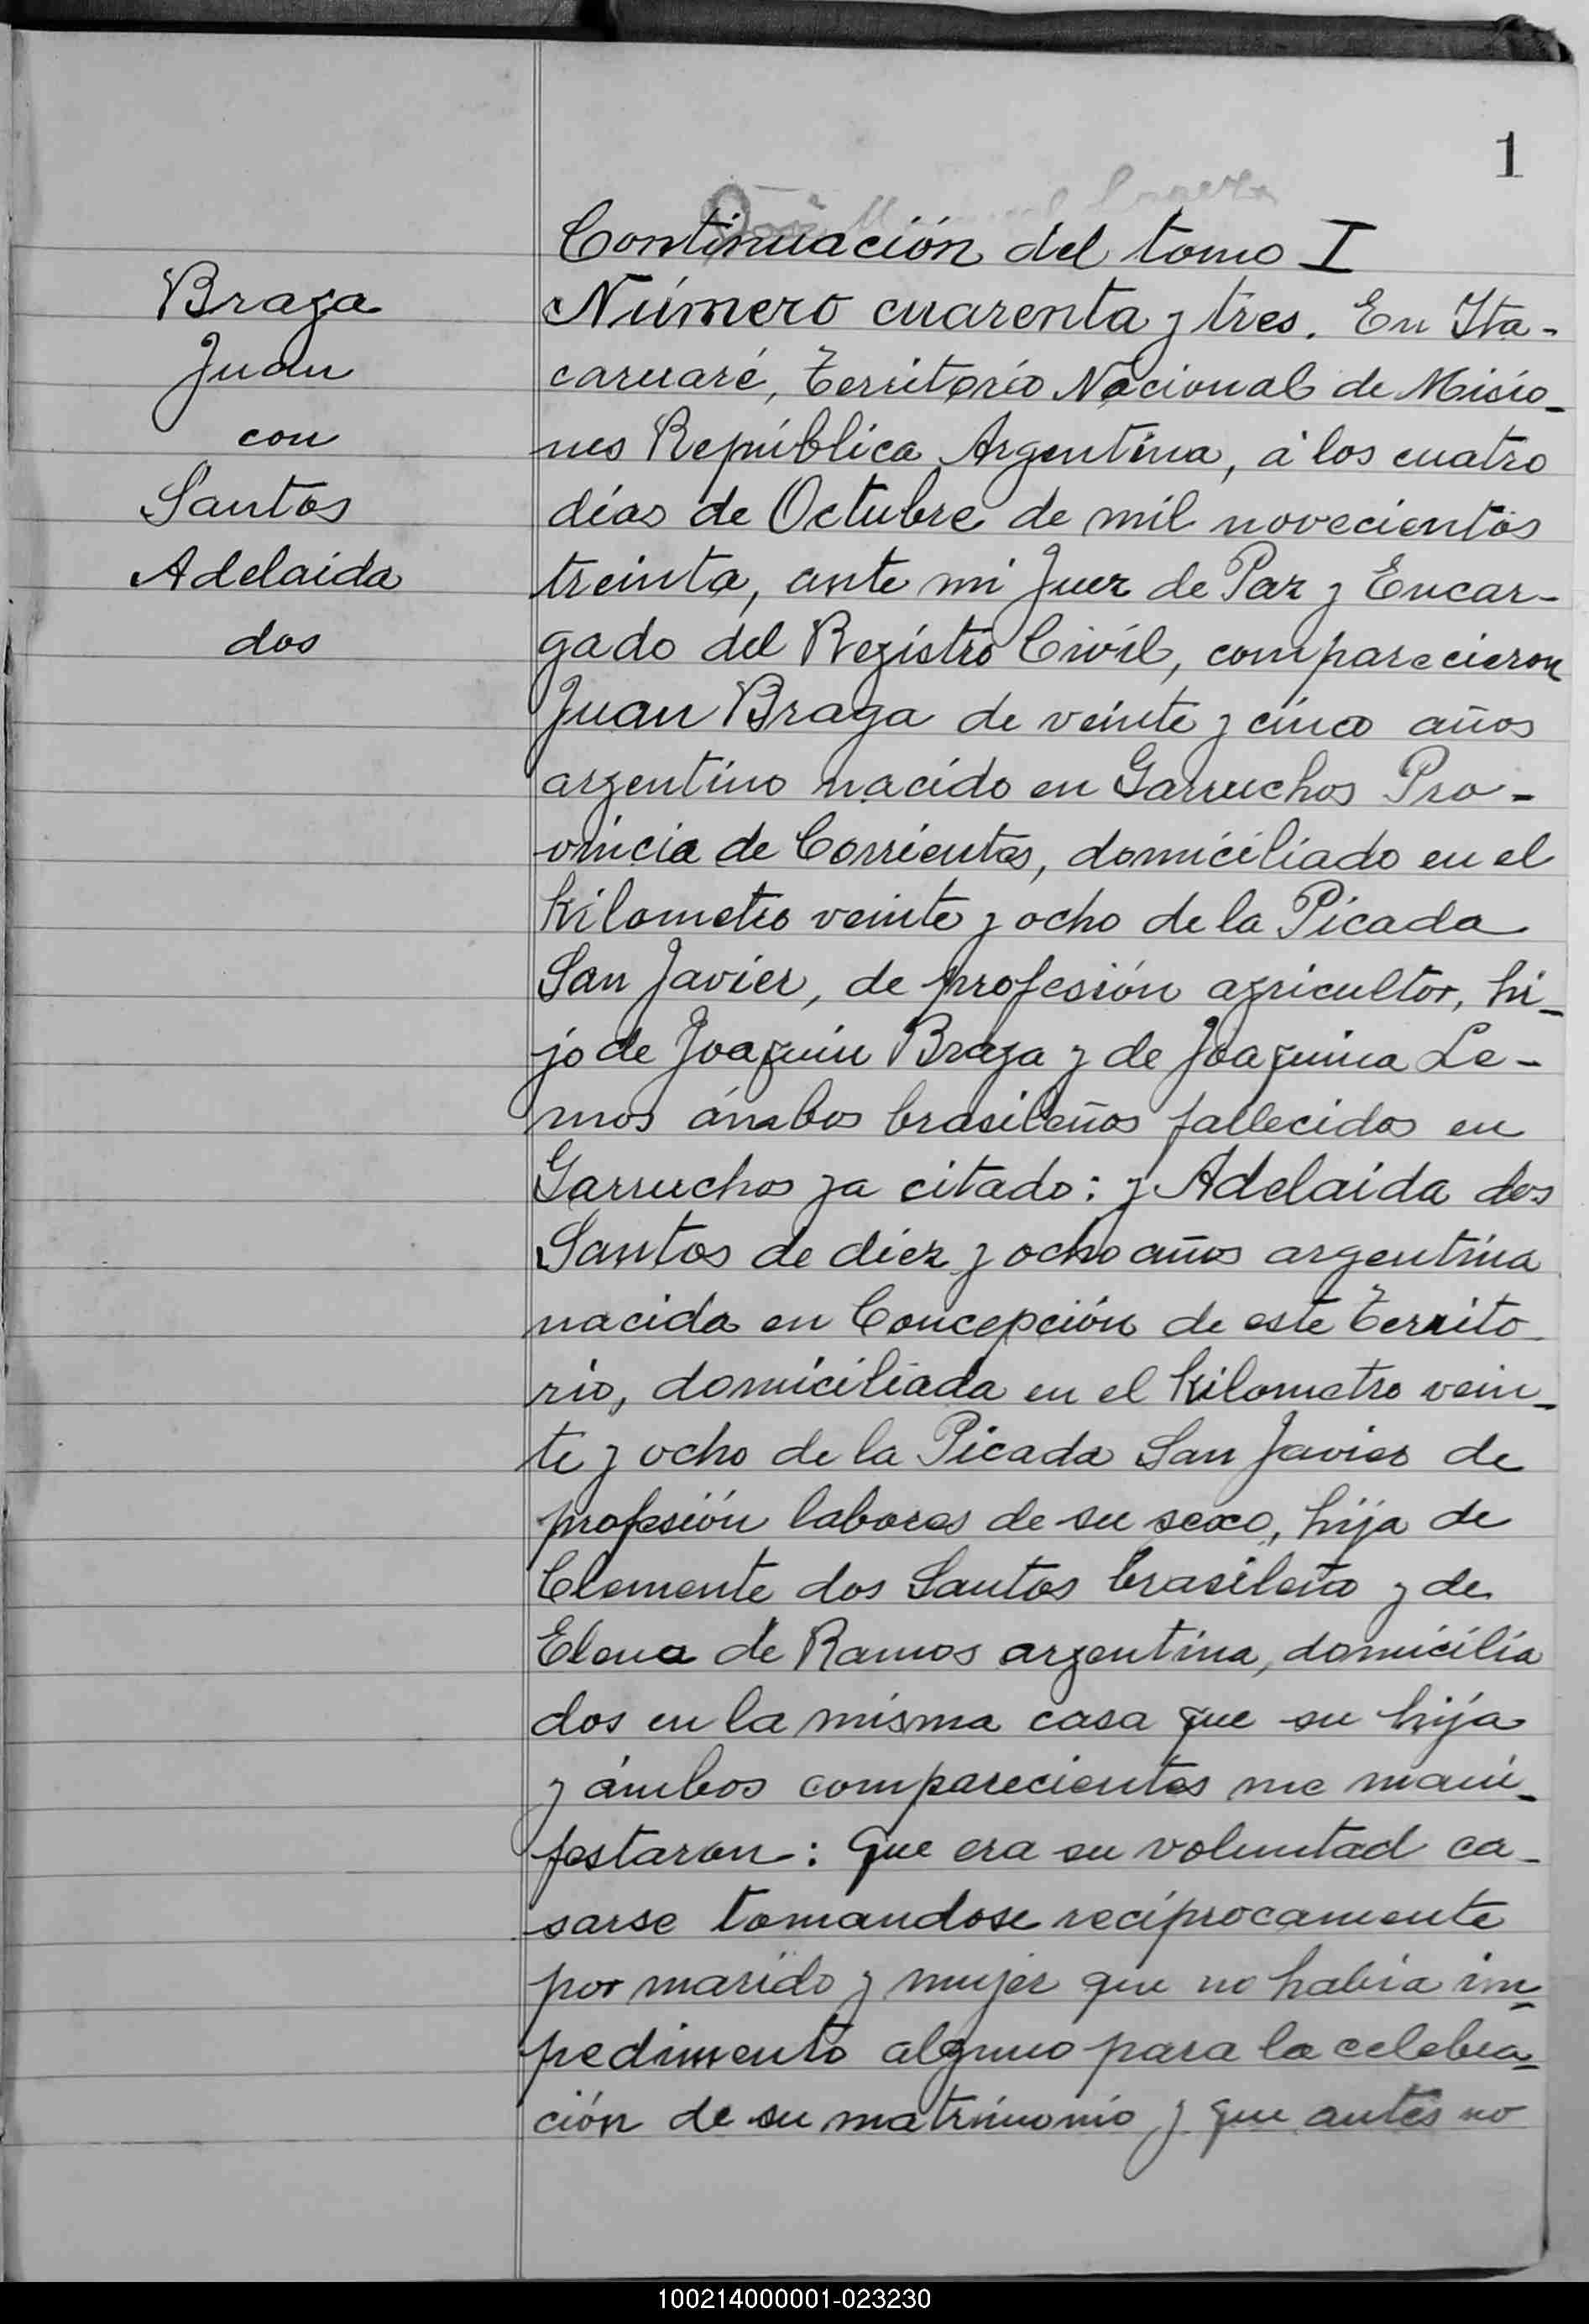 1
Continuación del tomo I
Braga
Juan
con
Santos
Adelaida
dos
Número cuarenta y tres. En Ita-
caruaré, Territorio Nacional de Misio-
nes República Argentina, á los cuatro
días de Octubre de mil novecientos
treinta, ante mi Juez de Paz y Encar-
gado del Registro Civil, comparecieron
Juan Braga de veinte y cinco años
argentino nacido en Garruchos Pro-
vincia de Corrientes, domiciliado en el
Kilometro veinte y ocho de la Picada
San Javier, de profesión agricultor, hi-
jo de Joaquin Braga y de Joaquina Le-
mos ámbos brasileños fallecidos en
Garruchos ya citado: y Adelaida dos
Santos de diez y ocho años argentina
nacida en Concepción de este Territo
rio, domiciliada en el Kilometro vein-
te y ocho de la Picada San Javier de
profesión labores de su sexo, hija de
Clemente dos Santos brasileño y de
Elena de Ramos argentina, domicilia
dos en la misma casa que su hija
y ámbos comparecientes me mani-
festaron: Que era su voluntad ca-
sarse tomandose recíprocamente
por marido y mujer que no había im-
pedimento alguno para la celebra-
ción de su matrimonio y que antes no
100214000001-023230